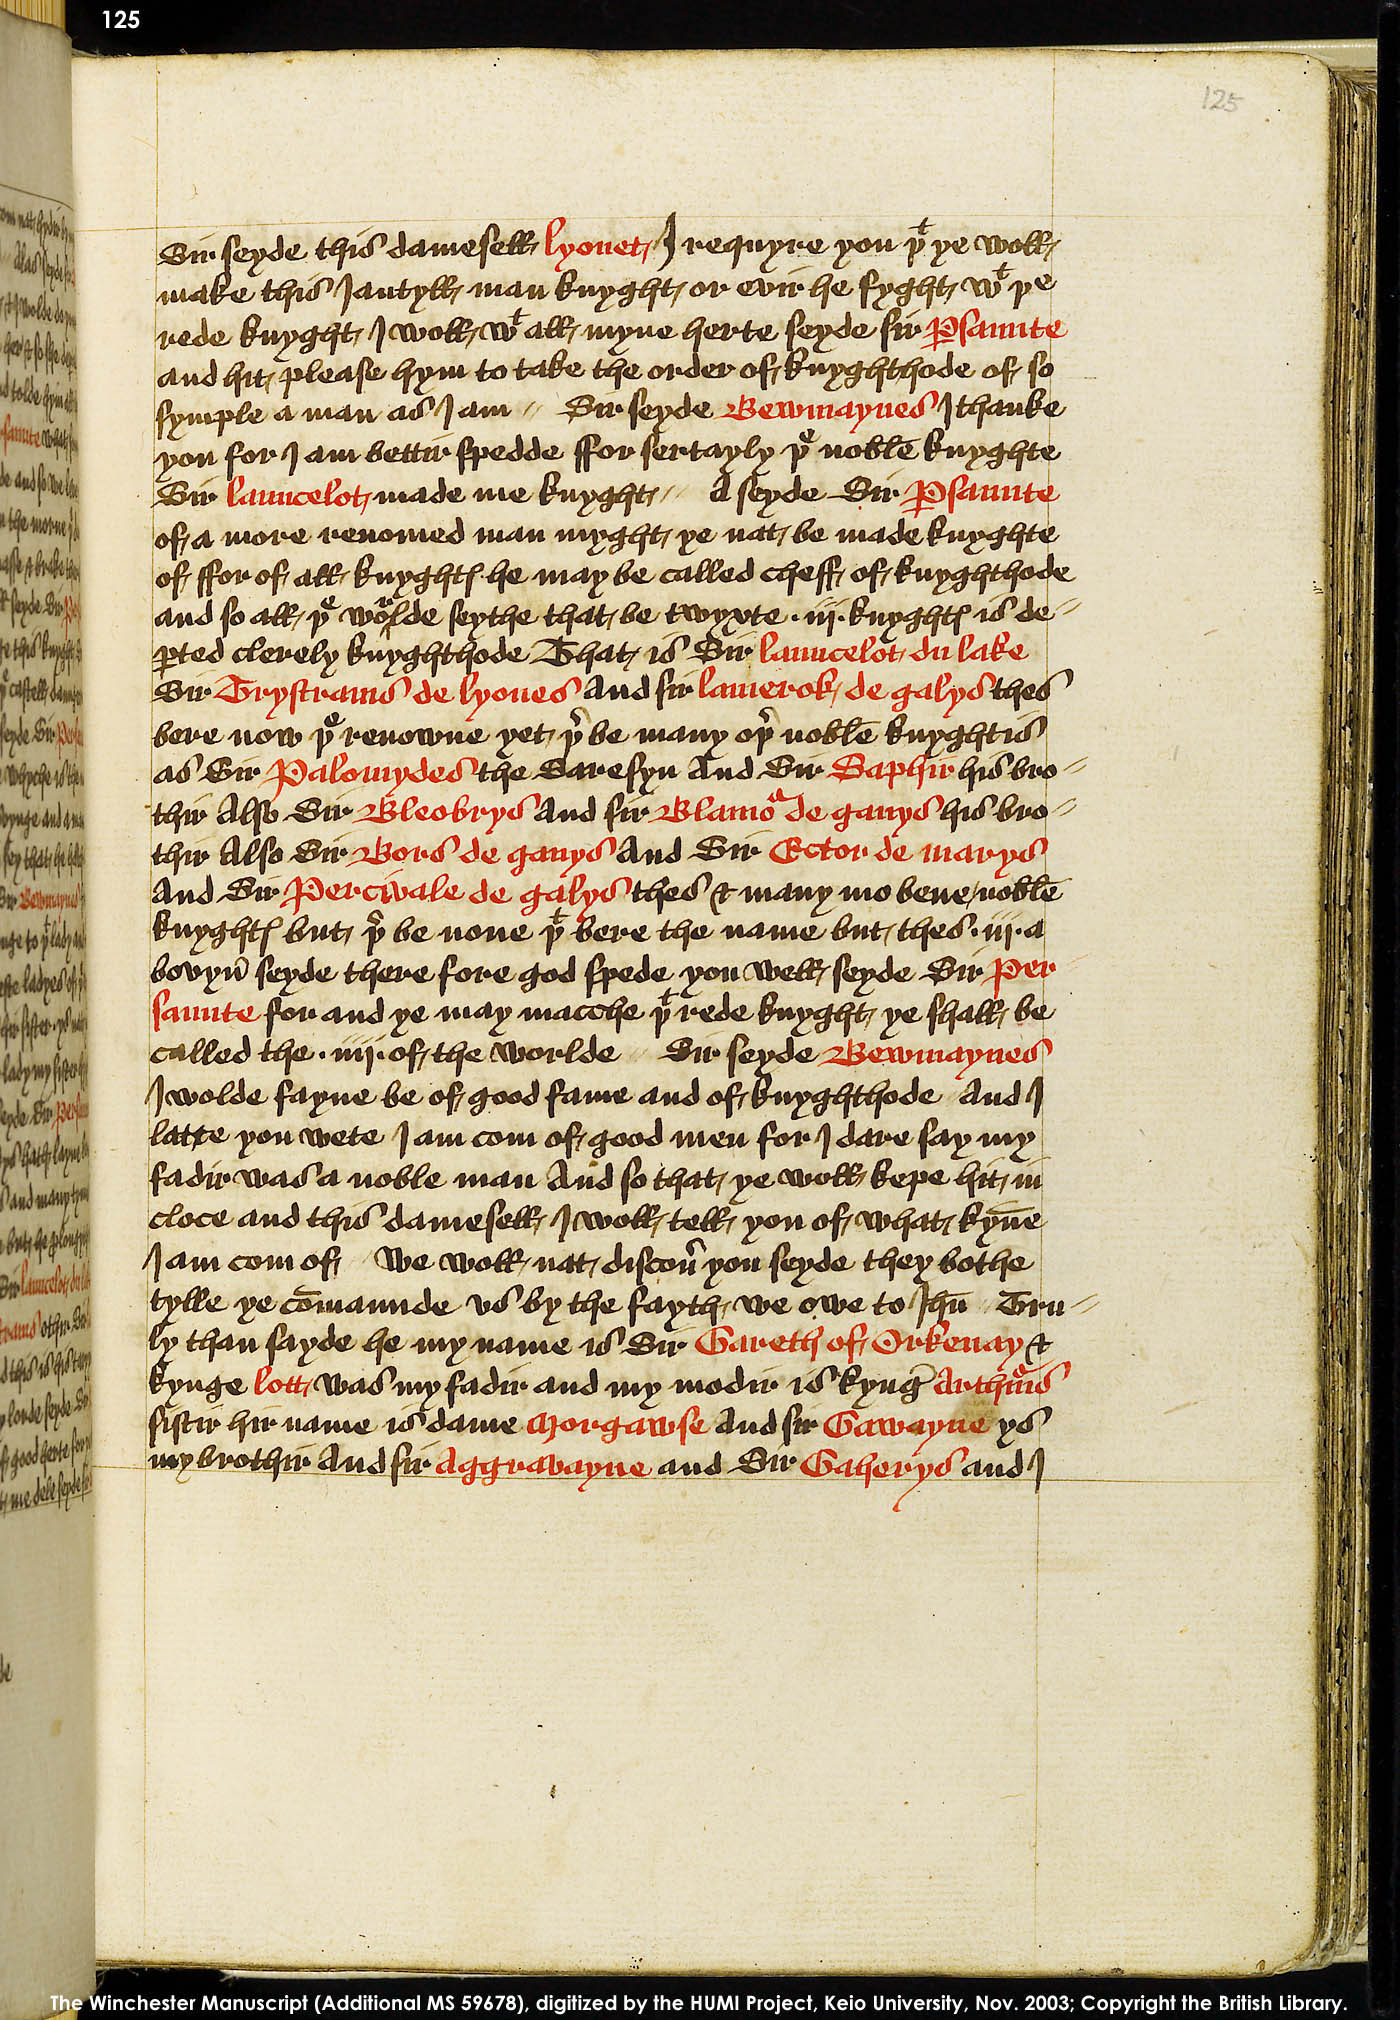 125
125
Sir seyde this damesell lyonet I requyre you þt ye woll
make this Jantyll man knyght or evir he fyght wt þe
rede knyght I woll wt all myne herte seyde sir Psaunte
and hit please hym to take the order of knyghthode of so
symple a man as I am // Sir seyde Bewmaynes I thanke
you for I am bettir spedde ffor sertayly þe noble knyghte
Sir launcelot made me knyght // A seyde Sir Psaunte
of a more renomed man myght ye nat be made knyghte
of ffor of all knyghtes he may be called cheff of knyghthode
and so all þe worlde seythe that be twyxte .iij. knyghtes is de=
pted clerely knyghthode That is Sir launcelot du lake
Sir Trystrams de lyones And sir lamerok de galys thes
bere now þe renowne yet þr be many oþr noble knyghtis
as Sir Palomydes the Saresyn And Sir Saphir his bro=
thir Also Sir Bleobrys And sir Blamor de ganys his bro=
thir Also Sir Bors de ganys And Sir Ector de marys
And Sir Percivale de galys thes & many mo bene noble
knyghtes but þr be none þt bere the name but thes .iij. a
bovyn seyde there fore god spede you well seyde Sir Per
saunte for and ye may macche þt rede knyght ye shall be
called the .iiij. of the worlde // Sir seyde Bewmaynes
I wolde fayne be of good fame and of knyghthode And I
latte you wete I am com of good men for I dare say my
fadir was a noble man And so that ye woll kepe hit in
cloce and this damesell I woll tell you of what kyne
I am com of // We woll nat discour you seyde they bothe
tylle ye comaunde vs by the fayth we owe to Jhu // Tru=
ly than sayde he my name is Sir Gareth of Orkenay &
kynge lott was my fadir and my modir is kyng Arthurs
sistir hir name is dame Morgawse And sir Gawayne ys
my brothir And sir Aggravayne and Sir Gaherys and I
The Winchester Manuscript (Additional MS 59678), digitized by the HUMI Project, Keio University, Nov. 2003; Copyright the British Library.